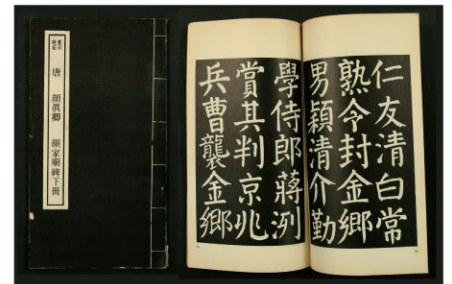 唐 顏眞卿 顏家廟碑下冊
仁友清白常
熟令封金鄉
男穎清介勤
學侍郎蔣洌
賞其判京兆
兵曹襲金鄉